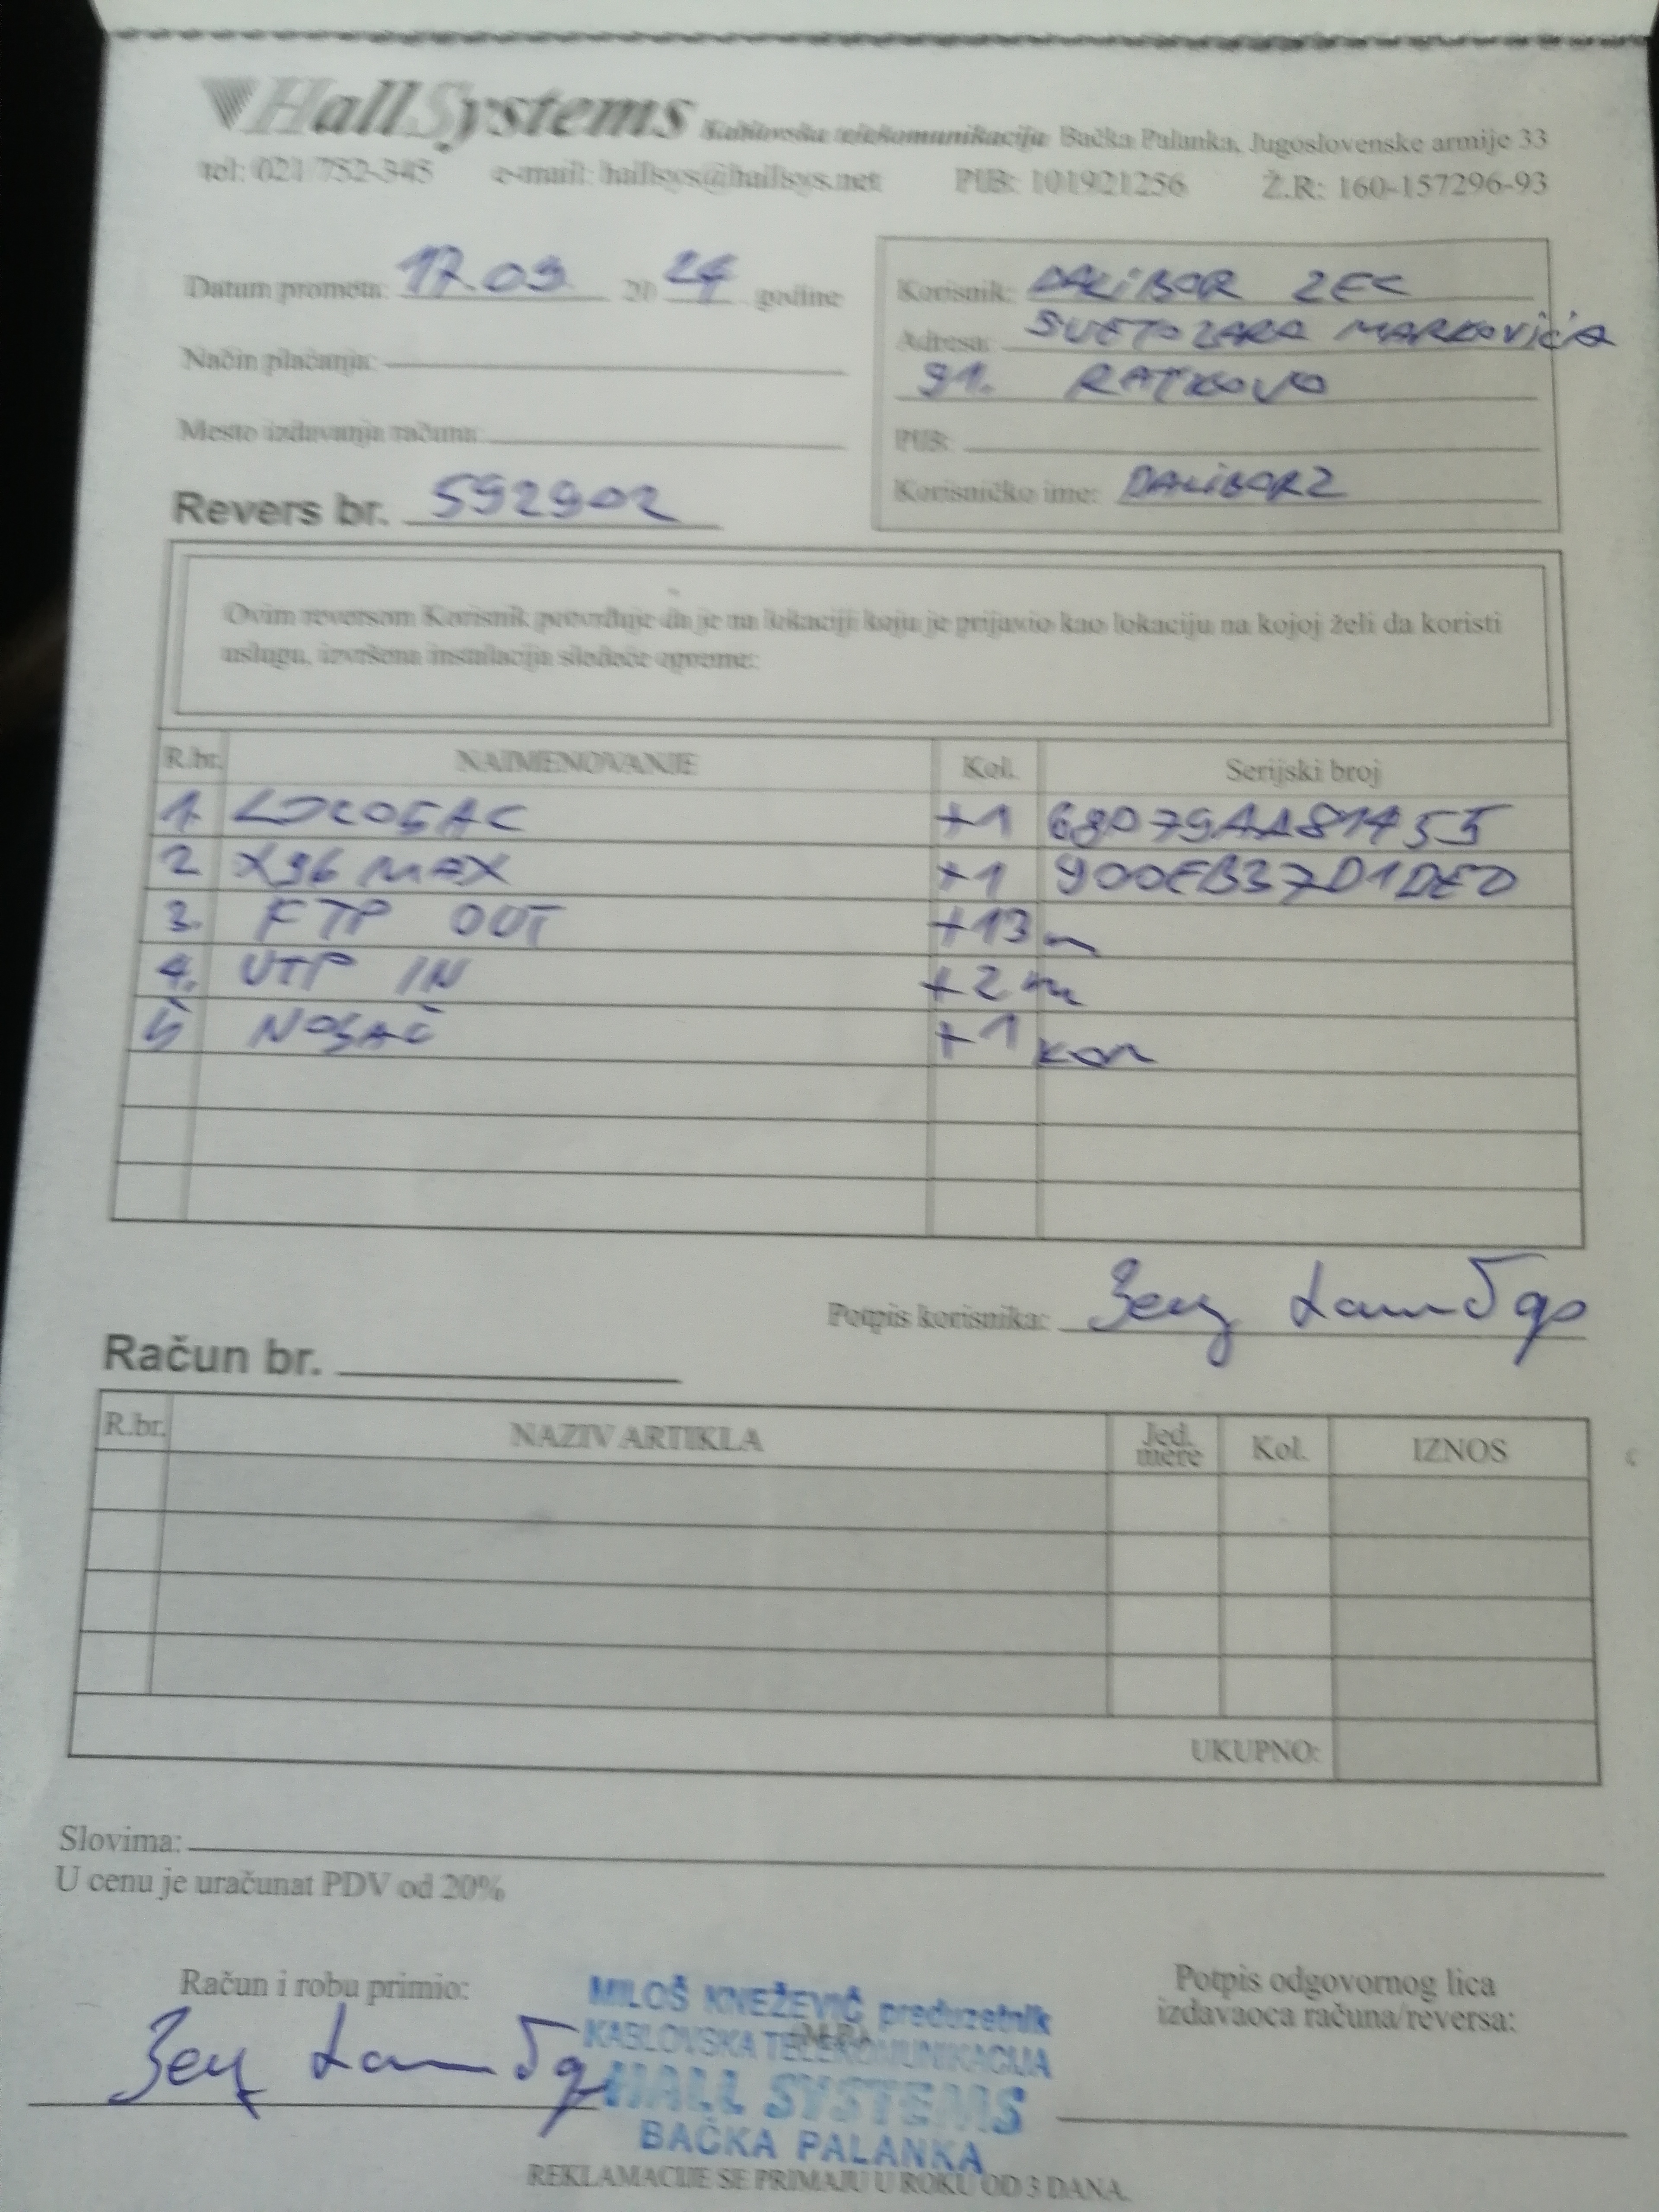 HallSystems Kablovska telekomunikacija Bačka Palanka, Jugoslovenske armije 33
tel: 021/752-345 e-mail: hallsys@hallsys.net PIB: 101921256 Ž.R: 160-157296-93
Datum prometa: 17.09 20 24 godine
Korisnik: DALIBOR ZEC
Adresa: SVETOZARA MARKOVIĆA
91. RATKOVO
Način plaćanja:
Mesto izdavanja računa:
PIB:
Korisničko ime: DALIBORZ
Revers br. 592902
Ovim reversom Korisnik potvrđuje da je na lokaciji koju je prijavio kao lokaciju na kojoj želi da koristi
uslugu, izvršena instalacija sledeće opreme:
R.br. NAIMENOVANJE Kol. Serijski broj
1. LOCO5AC +1
2 X96 MAX +1 900EB37D1DED
3. FTP OUT +13 m
4. UTP IN +2 m
5 NOSAČ +1 kom
Potpis korisnika: Зец Далибор
Račun br.
R.br. NAZIV ARTIKLA Jed. mere Kol. IZNOS
UKUPNO:
Slovima:
U cenu je uračunat PDV od 20%
Račun i robu primio:
Зец Далибор
MILOŠ KNEŽEVIĆ preduzetnik
KABLOVSKA TELEKOMUNIKACIJA
HALL SYSTEMS
BAČKA PALANKA
Potpis odgovornog lica
izdavaoca računa/reversa:
REKLAMACIJE SE PRIMAJU U ROKU OD 3 DANA.